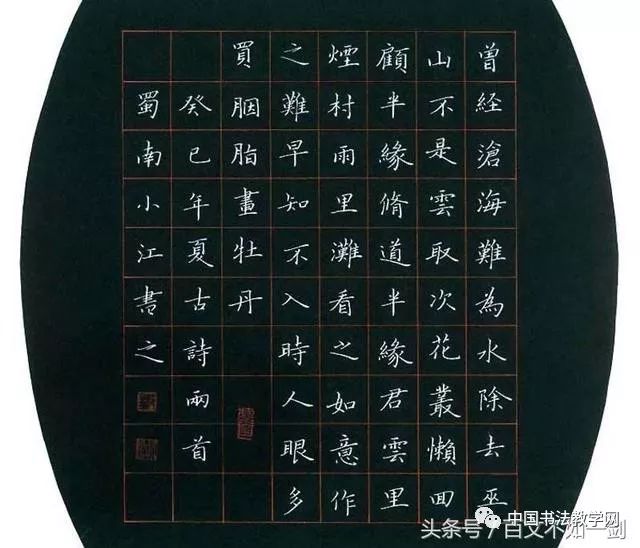 曾經滄海難為水除去巫
山不是雲取次花叢懶回
顧半緣脩道半緣君雲里
煙村雨里灘看之如意作
之難早知不入時人眼多
買胭脂畫牡丹
癸巳年夏古詩兩首
蜀南小江書之
中国书法教学网
头条号 / 不如一剑